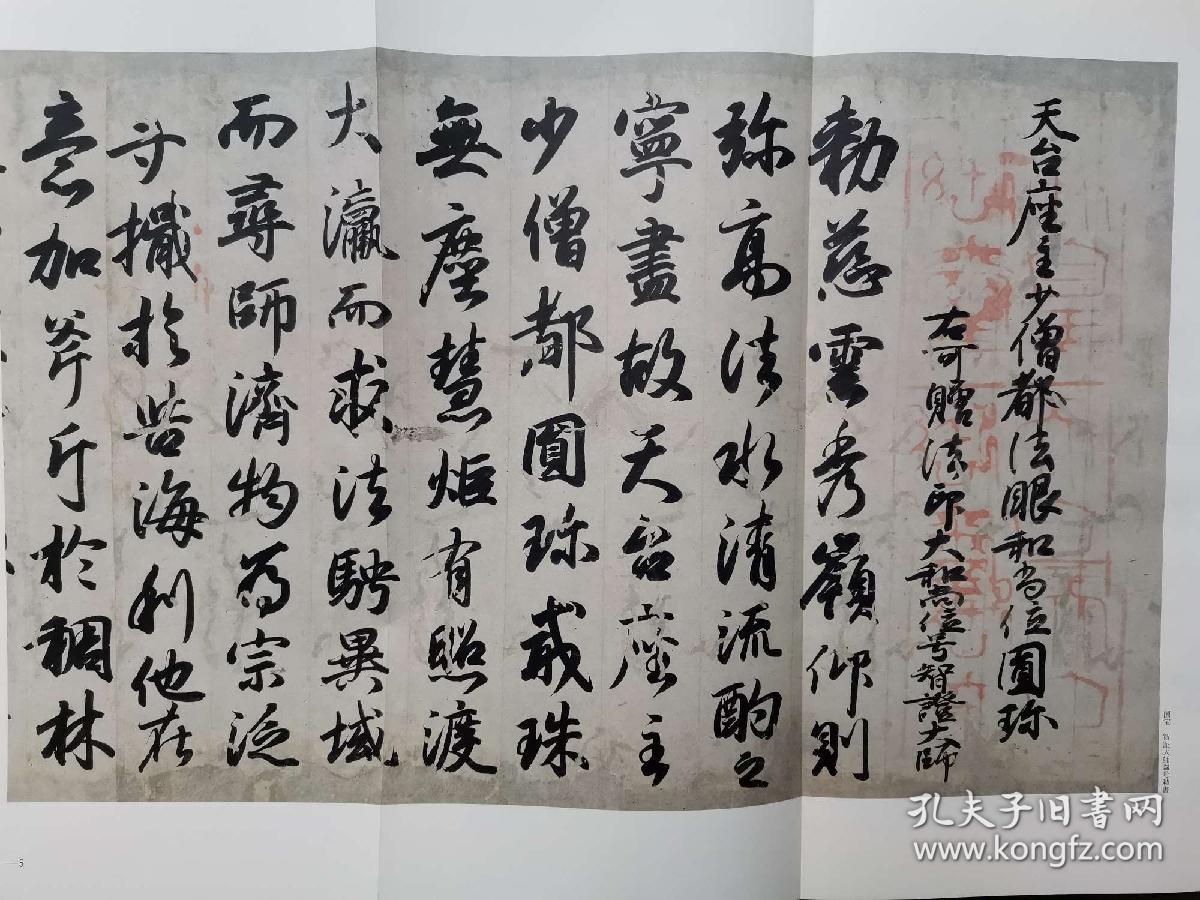 天台座主少僧都法眼和尚位圓珎
右可贈法印大和尚位号智證大師
勅慈雲秀嶺仰則
弥高法水清流酌之
寧盡故天台座主
少僧都圓珎戒珠
無塵慧炬有照渡
大瀛而求法騁異域
而尋師濟物為宗泛
寸檝於苦海利他在
意加斧斤於稠林
国宝 智証大師諡号勅書
5
孔夫子旧书网
www.kongfz.com